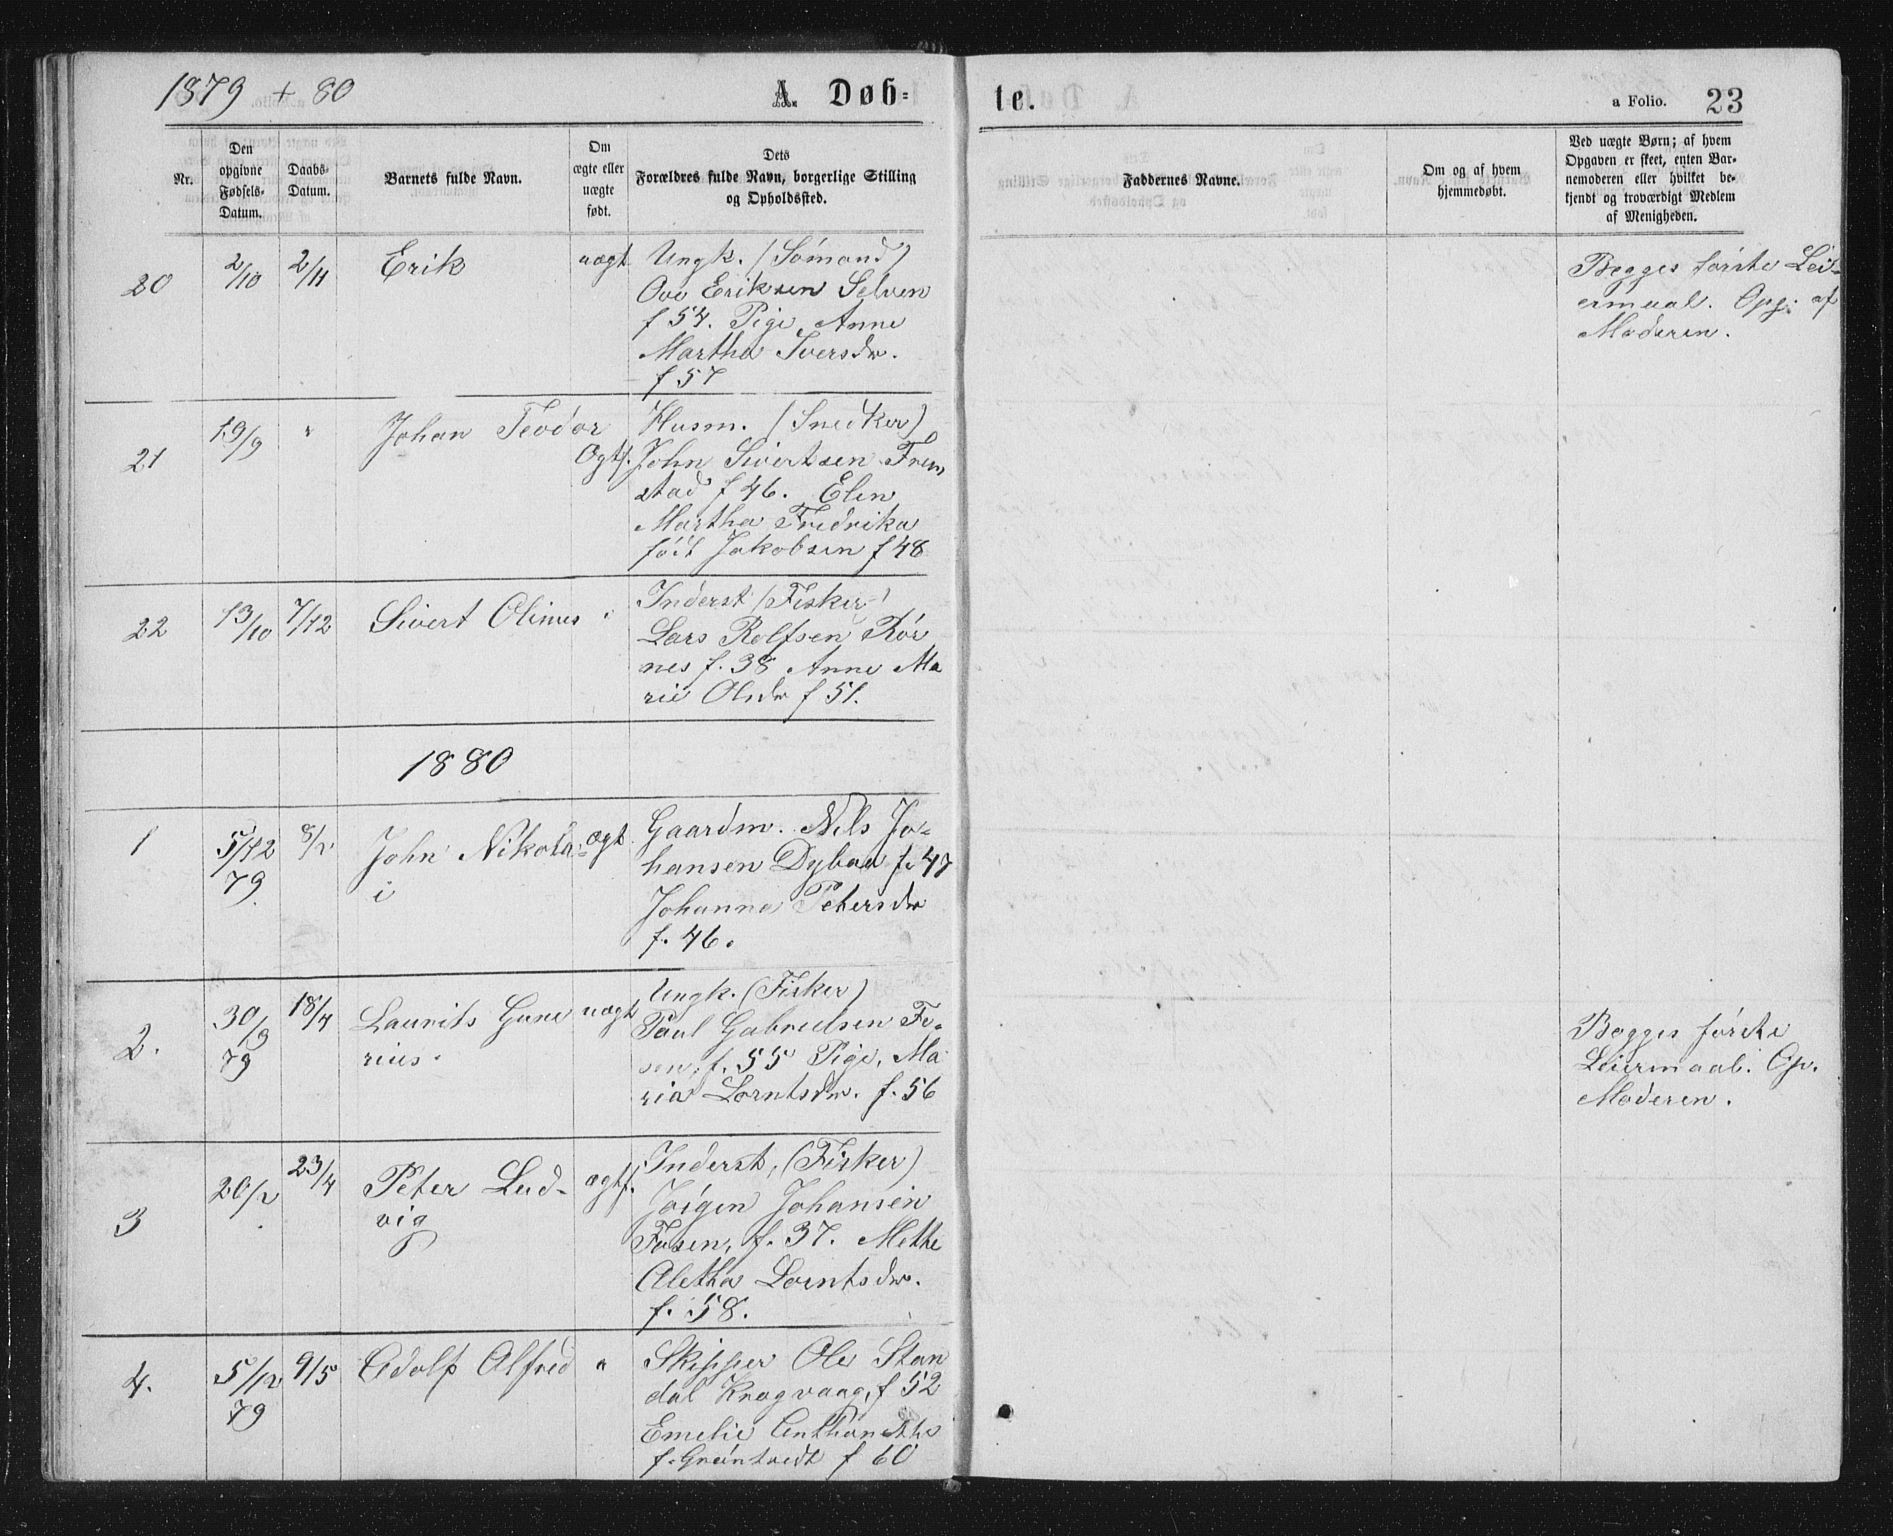 1879 + 80
A. Døb=
te.
a Folio. 23
Nr.
Den
opgivne
Fødsels-
Datum.
Daabs-
Datum.
Barnets fulde Navn.
Om
ægte eller
uægte
født.
Dets
Forældres fulde Navn, borgerlige Stilling
og Opholdssted.
Faddernes Navne.
Om og af hvem
hjemmedøbt.
Ved uægte Børn; af hvem
Opgaven er skeet, enten Bar-
nemoderen eller hvilket be-
kjendt og troværdigt Medlem
af Menigheden.
20 2/10 2/11 Erik uægt Ungk. (Sömand)
Ove Eriksen Selven
f 54. Pige Anne
Martha Iversdr.
f 57
Begges förste Lei-
ermaal. Opg: af
Moderen.
21 19/9 " Johan Teodor Ægtf. Husm. (Snedker)
John Sivertsen Frem
stad f 46. Elen
Martha Fredrika
född Jakobsen f 48
22 13/10 7/12 Sivert Olinus " Inderst (Fisker)
Lars Rolfsen Rör
nes f. 38 Anne Ma
rie Olsdr f 51.
1880
1 5/12 79. 8/2 John Nikola-
i
ægt. Gaardm. Nils Jo-
hansen Dybaa f. 47
Johanna Petersdr
f. 46.
2. 30/9 79 18/4 Laurits Gune
rius.
uægt Ungk. (Fisker)
Paul Gabrielsen Fo-
sen, f. 55 Pige, Ma
ria Lorntsdr. f. 56
Begges förste
Leiermaal. Op.
Moderen.
3 20/2 23/4 Peter Lud-
vig
ægtf. Inderst, (Fisker)
Jörgen Johansen
Fosen, f. 37. Methe
Aletha Lorntsdr.
f. 58.
4. 5/12 79 9/5 Adolf Alfred " Skipper Ole Stan
dal Kragvaag, f 52
Emelie
f. Gröntvedt f 60